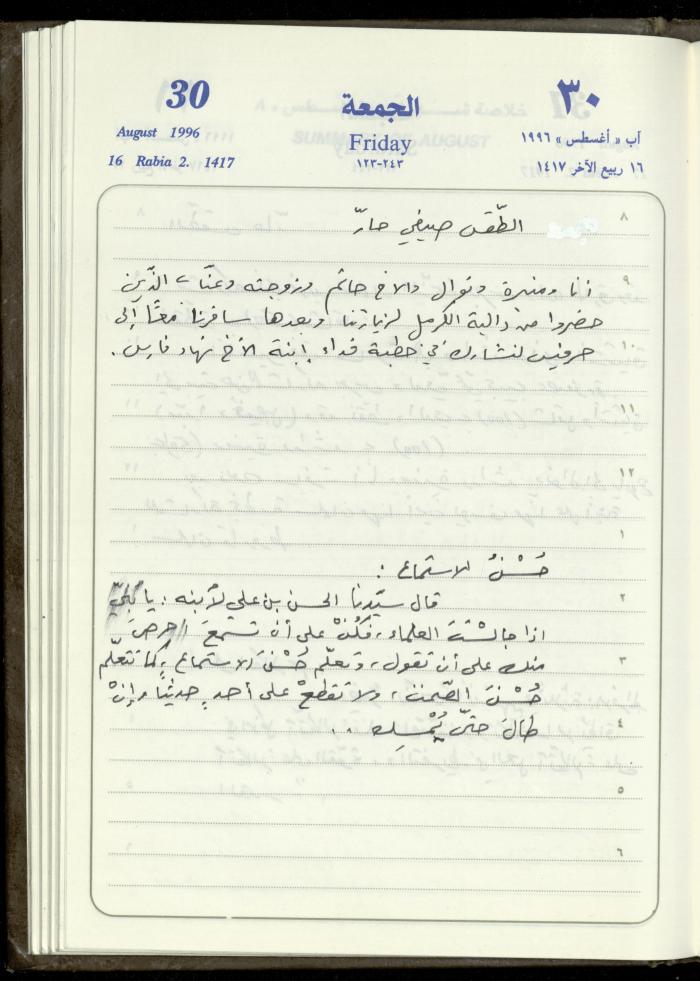 30
August 1996
16 Rabia 2. 1417
الجمعة
Friday
١٢٣-٢٤٣
٣٠
آب « أغسطس » ١٩٩٦
١٦ ربيع الآخر ١٤١٧
٨
الطّقس صيفي حارّ
٩
أنا ومنيرة ونوال والاخ حاتم وزوجته الذّين
حضروا من دالية الكرمل لزيارتنا وبعدها سافرنا معًا إلى
حرفيش لنشارك في خطبة فداء إبنة الأخ نهاد فارس .
١٠
١١
١٢
١
حُسْنُ الاستماع :
٢
قال سيّدنا الحسن بن علي لأبنه : يا بُنيّ
اذا جالسْتَ العلماء ، فكُنْ على أن تسْتمعَ احرصَ
٣
منك على أن تقول ، وتعلّم حُسْنَ الاستماع ، كما تتعلّم
حُسْنَ الصّمت ، ولا تقطعْ على أحدٍ حديثًا وإنْ
٤
طالَ حتّى يُمْسِك . .
٥
٦